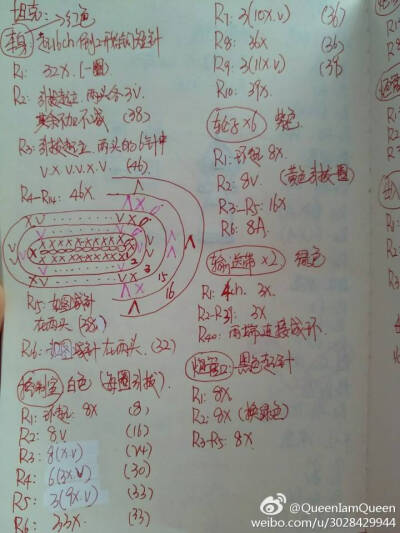 坦克: →红色
车身 起16ch 例上
R1: 32X. (一圈)
R2: 引拔起立. 两头各3V.
其余 不加不减 (38)
R3: 引拔起立. 两头的6针中
V.X.V.V.X.V (46)
R4-R14: 46X
R15: 如图减针
在两头 (38)
R16: 如图减针在两头. (32)
控制室 白色 (每圈引拔)
R1: 环起 8X (8)
R2: 8V (16)
R3: 8(X.V) (24)
R4: 6(3X.V) (30)
R5: 3(9X.V) (33)
R6: 33X. (33)
R7: 3(10X.V) (36)
R8: 36X (36)
R9: 3(11X.V) (39)
R10: 39X.
轮子×6 紫色
R1: 环起 8X.
R2: 8V (黄色引拔圈)
R3-R5: 16X
R6: 8A.
输送带×2 绿色
R1: 4ch. 3X.
R2-R39: 3X
R40: 两端连接成环.
烟窗口: 黑色起针
R1: 8X
R2: 8X (换绿色)
R3-R5: 8X
@QueenIamQueen
weibo.com/u/3028429944